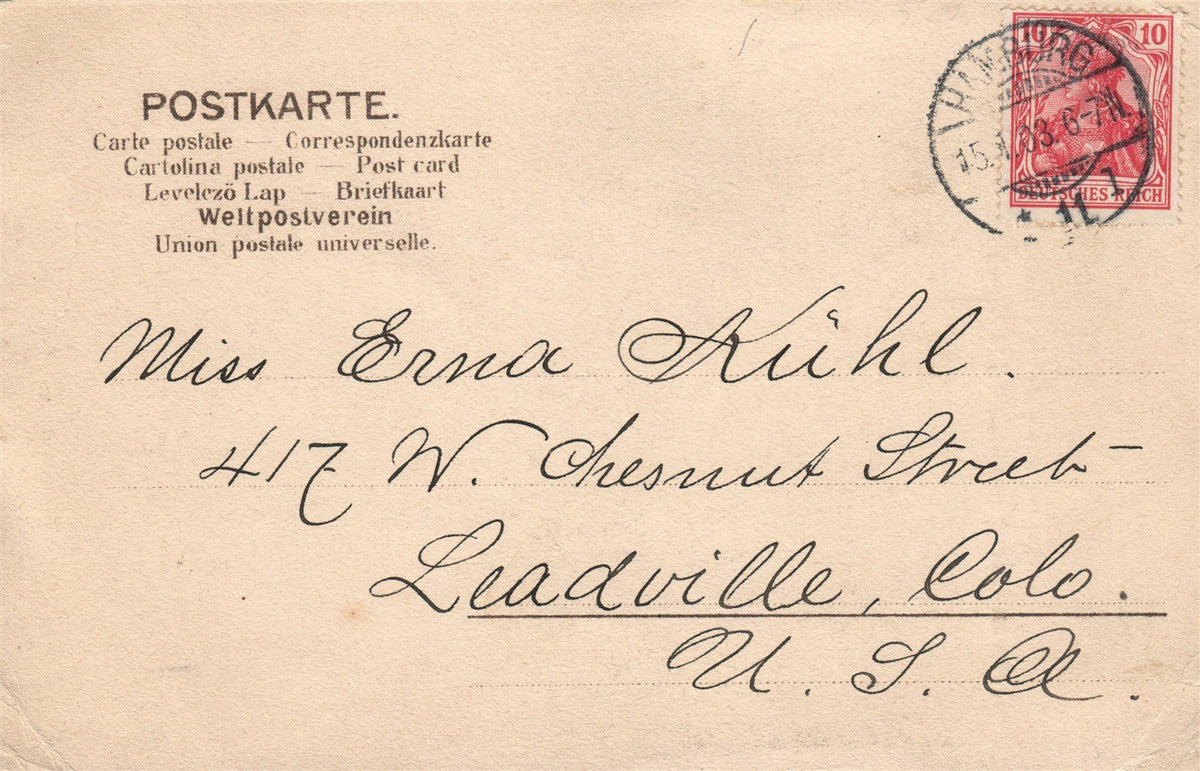 POSTKARTE.
Carte postale — Correspondenzkarte
Cartolina postale — Post card
Levelező Lap — Briefkaart
Weltpostverein
Union postale universelle.
10 10
DEUTSCHES REICH
HAMBURG
6-7N.
1
* 11.
Miss Erna Kühl.
417 W. Chesnut Street
Leadville, Colo.
U. S. A.